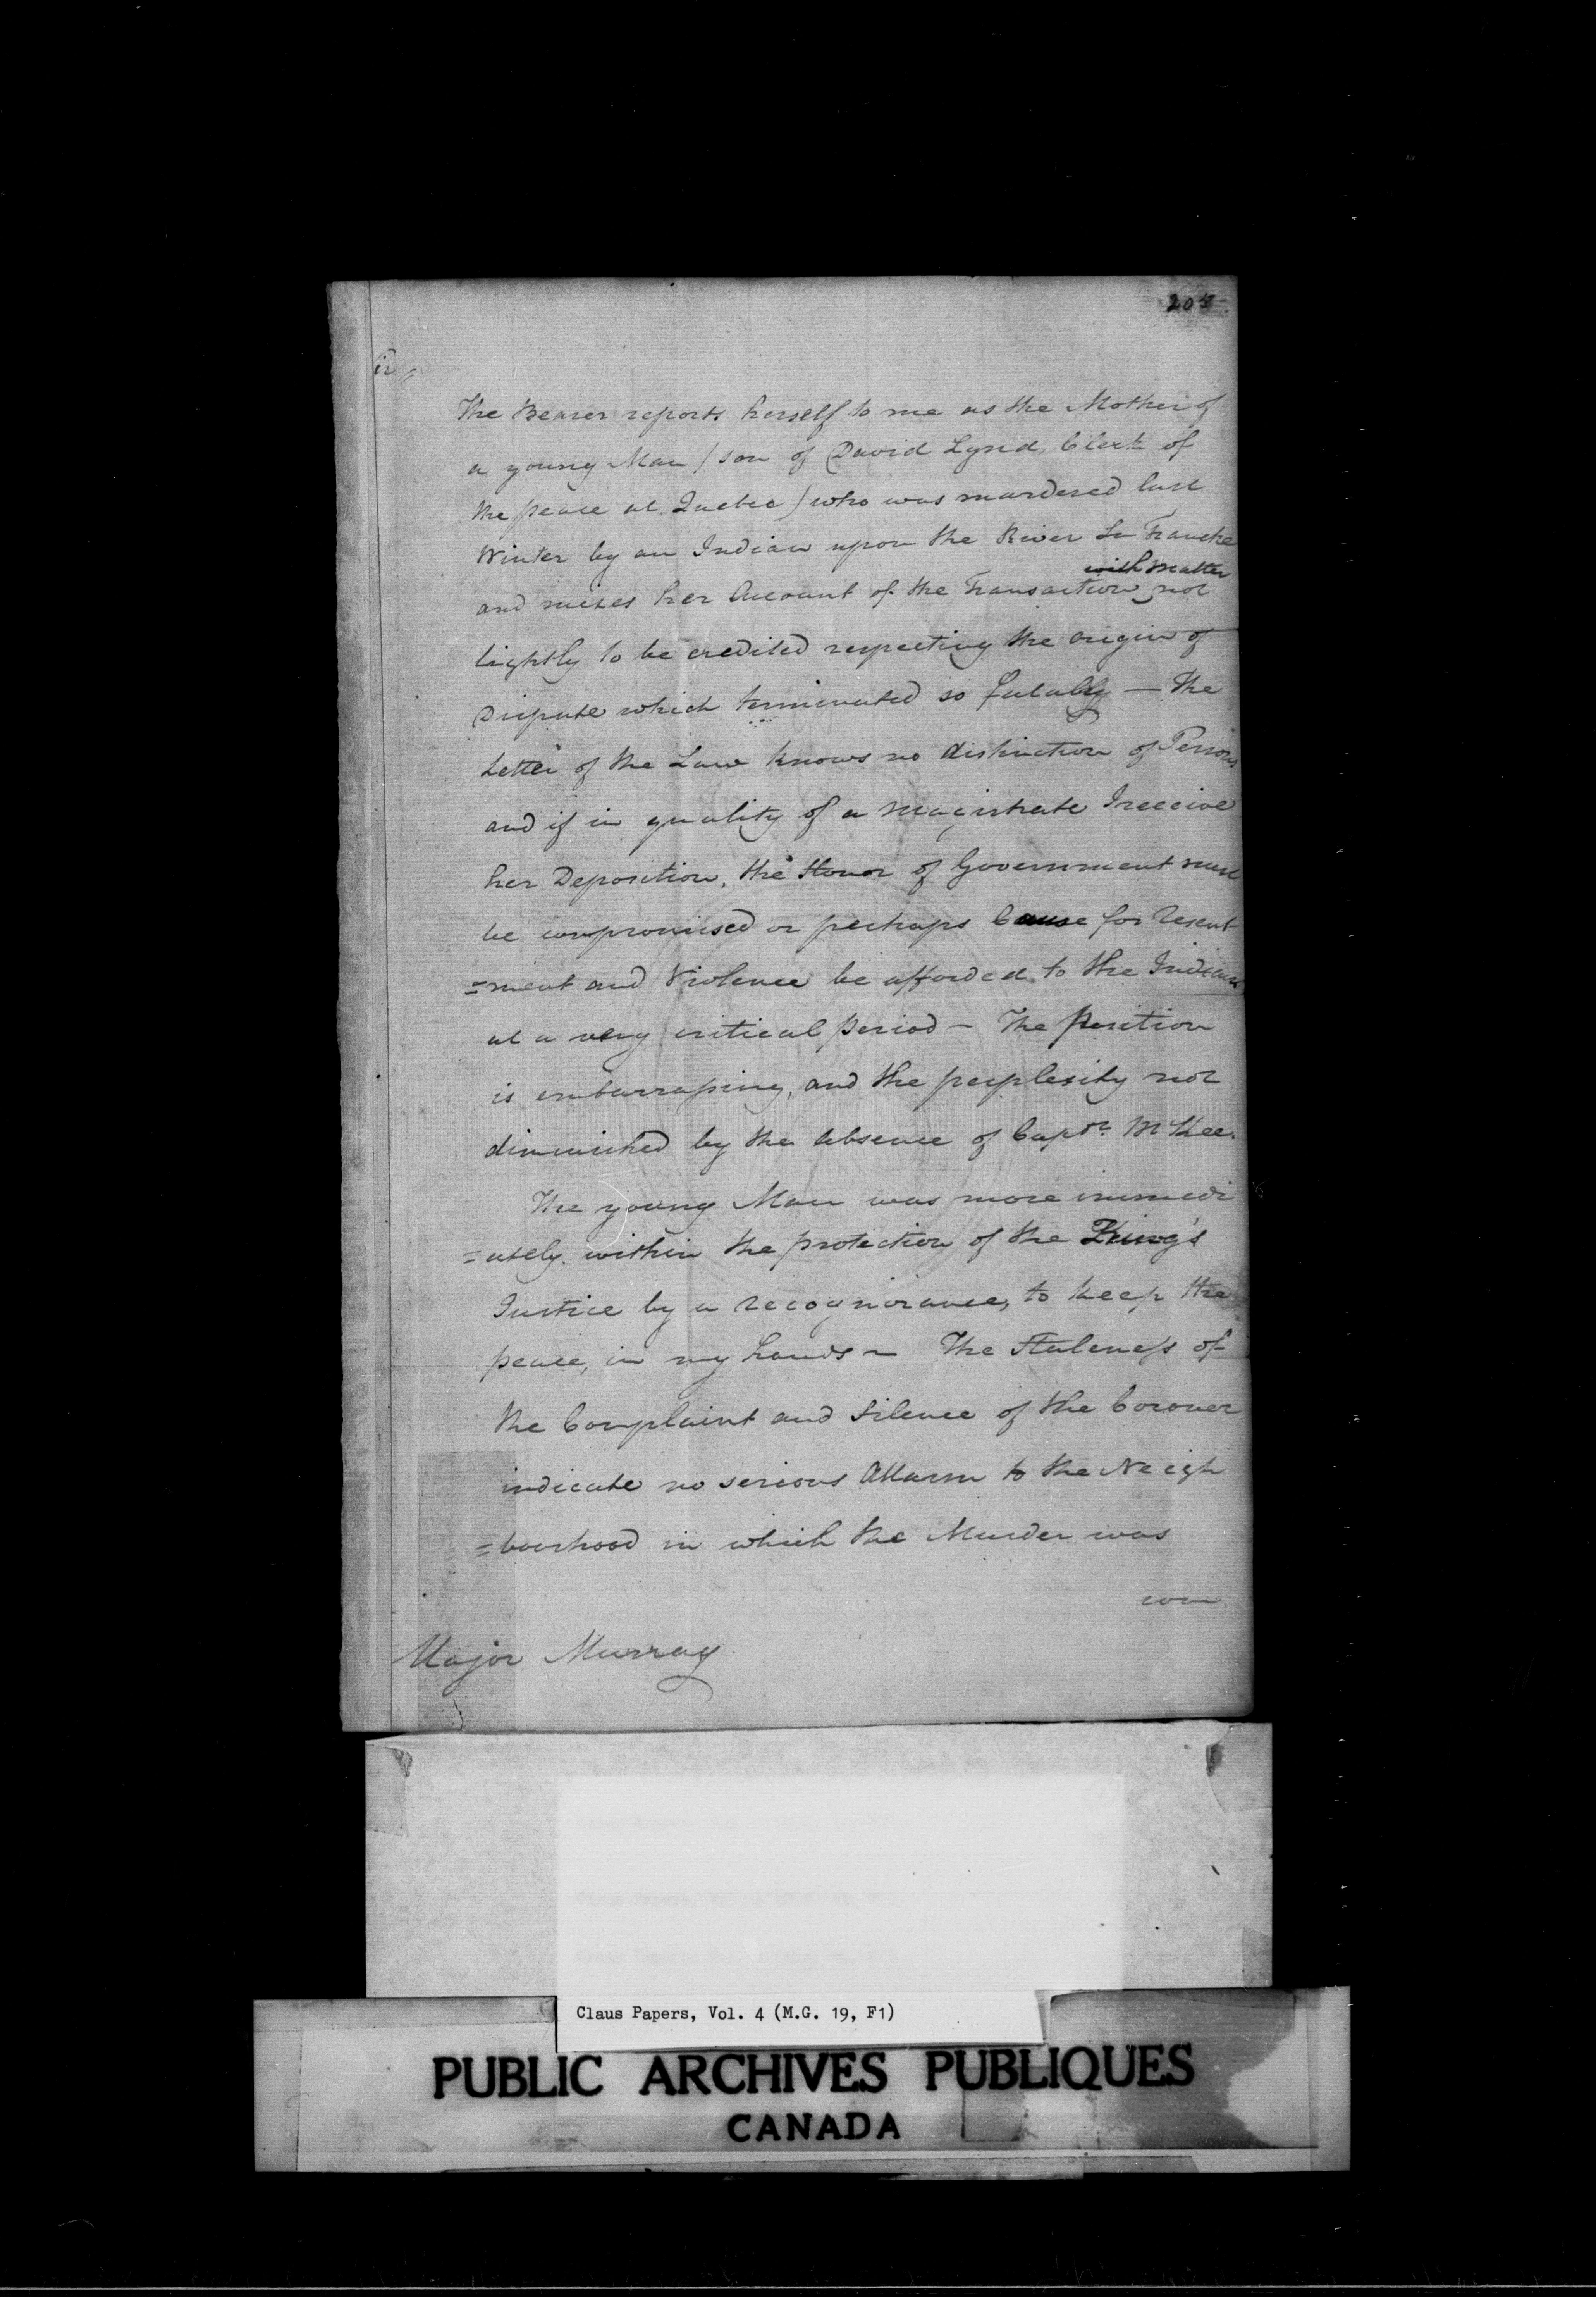 205
ir
The Bearer reports herself to me as the Mother of
a young Man / son of David Lynd, Clerk of
the peace at Quebec / who was murdered last
Winter by an Indian upon the River La Tranche
with matter
and mixes her Account of the Transaction not
lightly to be credited respecting the origin of
Dispute which terminated so fatally — The
Letter of the Law knows no distinction of Persons
and if in quality of a Magistrate I receive
her Deposition, the Honor of Government must
be compromised or perhaps Cause for Resent
=ment and Violence be afforded to the Indians
at a very critical period — The Position
is embarrassing, and the perplexity not
diminished by the absence of Captn. McKee.
The young Man was more immedi
=ately within the protection of the King's
Justice by a recognizance, to keep the
peace, in my hands — The Staleness of
the Complaint and Silence of the Coroner
indicate no serious Allarm to the Neigh
=bourhood in which the Murder was
com
Major Murray
Claus Papers, Vol. 4 (M.G. 19, F1)
PUBLIC ARCHIVES PUBLIQUES
CANADA